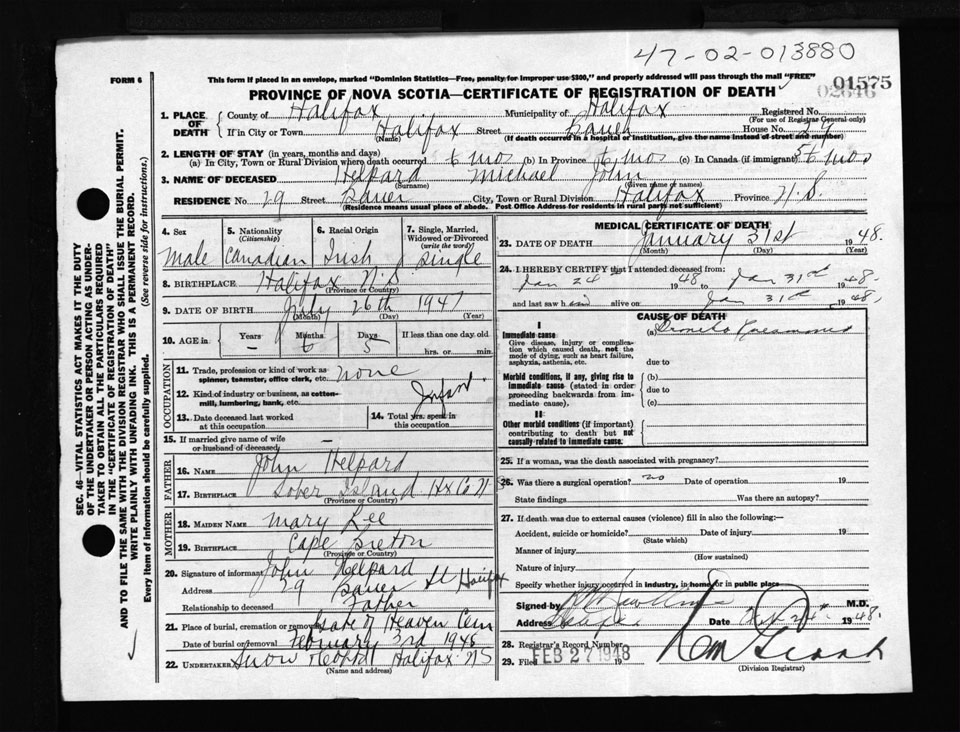 47-02-013880
FORM 6
This form if placed in an envelope, marked "Dominion Statistics—Free, penalty for improper use $300," and properly addressed will pass through the mail "FREE"
01575
02646
PROVINCE OF NOVA SCOTIA—CERTIFICATE OF REGISTRATION OF DEATH
1. PLACE OF DEATH
County of Halifax Municipality of Halifax Registered No.
(For use of Registrar General only)
If in City or Town Halifax Street Bauer House No. 29
(Name) (If death occurred in a hospital or institution, give the name instead of street and number)
2. LENGTH OF STAY (in years, months and days)
(a) In City, Town or Rural Division where death occurred 6 mos (b) In Province 6 mos (c) In Canada (if immigrant) 6 mos
3. NAME OF DECEASED Helpard Michael John
(Surname) (Given name or names)
RESIDENCE No. 29 Street Bauer City, Town or Rural Division Halifax Province N.S.
(Residence means usual place of abode. Post Office Address for residents in rural parts not sufficient)
4. Sex
Male
5. Nationality
(Citizenship)
Canadian
6. Racial Origin
Irish
7. Single, Married, Widowed or Divorced
(write the word)
Single
8. BIRTHPLACE Halifax N.S.
(Province or Country)
9. DATE OF BIRTH July 26th 1947
(Month) (Day) (Year)
10. AGE in Years Months Days If less than one day old
- 6 5 hrs. or min.
OCCUPATION
11. Trade, profession or kind of work as spinner, teamster, office clerk, etc. none
12. Kind of industry or business, as cotton-mill, lumbering, bank, etc. Infant
13. Date deceased last worked at this occupation
14. Total yrs. spent in this occupation
15. If married give name of wife or husband of deceased -
FATHER
16. NAME John Helpard
17. BIRTHPLACE Sober Island Hx Co N.S
(Province or Country)
MOTHER
18. MAIDEN NAME Mary Lee
19. BIRTHPLACE Cape Breton
(Province or Country)
20. Signature of informant John Helpard
Address 29 Bauer St Halifax
Relationship to deceased Father
21. Place of burial, cremation or removal Gate of Heaven Cem
Date of burial or removal February 3rd 1948
22. UNDERTAKER Snow Halifax NS
(Name and address)
MEDICAL CERTIFICATE OF DEATH
23. DATE OF DEATH January 31st 1948.
(Month) (Day) (Year)
24. I HEREBY CERTIFY that I attended deceased from:
Jan 28 1948 to Jan 31st 1948.
and last saw him alive on Jan 31st 1948.
CAUSE OF DEATH
I
Immediate cause (a) Broncho Pneumonia
Give disease, injury or complication which caused death, not the mode of dying, such as heart failure, asphyxia, asthenia, etc.
due to
Morbid conditions, if any, giving rise to immediate cause (stated in order proceeding backwards from immediate cause).
(b)
due to
(c)
II
Other morbid conditions (if important) contributing to death but not causally related to immediate cause.
25. If a woman, was the death associated with pregnancy?
26. Was there a surgical operation? no Date of operation 19
State findings Was there an autopsy?
27. If death was due to external causes (violence) fill in also the following:—
Accident, suicide or homicide? Date of injury 19
(State which)
Manner of injury
(How sustained)
Nature of injury
Specify whether injury occurred in industry, in home, or in public place
Signed by M.D.
Address Halifax Date 1948.
28. Registrar's Record Number
29. Filed FEB 27 1948 19
(Division Registrar)
SEC. 46—VITAL STATISTICS ACT MAKES IT THE DUTY OF THE UNDERTAKER OR PERSON ACTING AS UNDERTAKER TO OBTAIN ALL THE PARTICULARS REQUIRED IN THE "CERTIFICATE OF REGISTRATION OF DEATH" AND TO FILE THE SAME WITH THE DIVISION REGISTRAR WHO SHALL ISSUE THE BURIAL PERMIT.
WRITE PLAINLY WITH UNFADING INK. THIS IS A PERMANENT RECORD.
Every item of information should be carefully supplied. (See reverse side for instructions.)